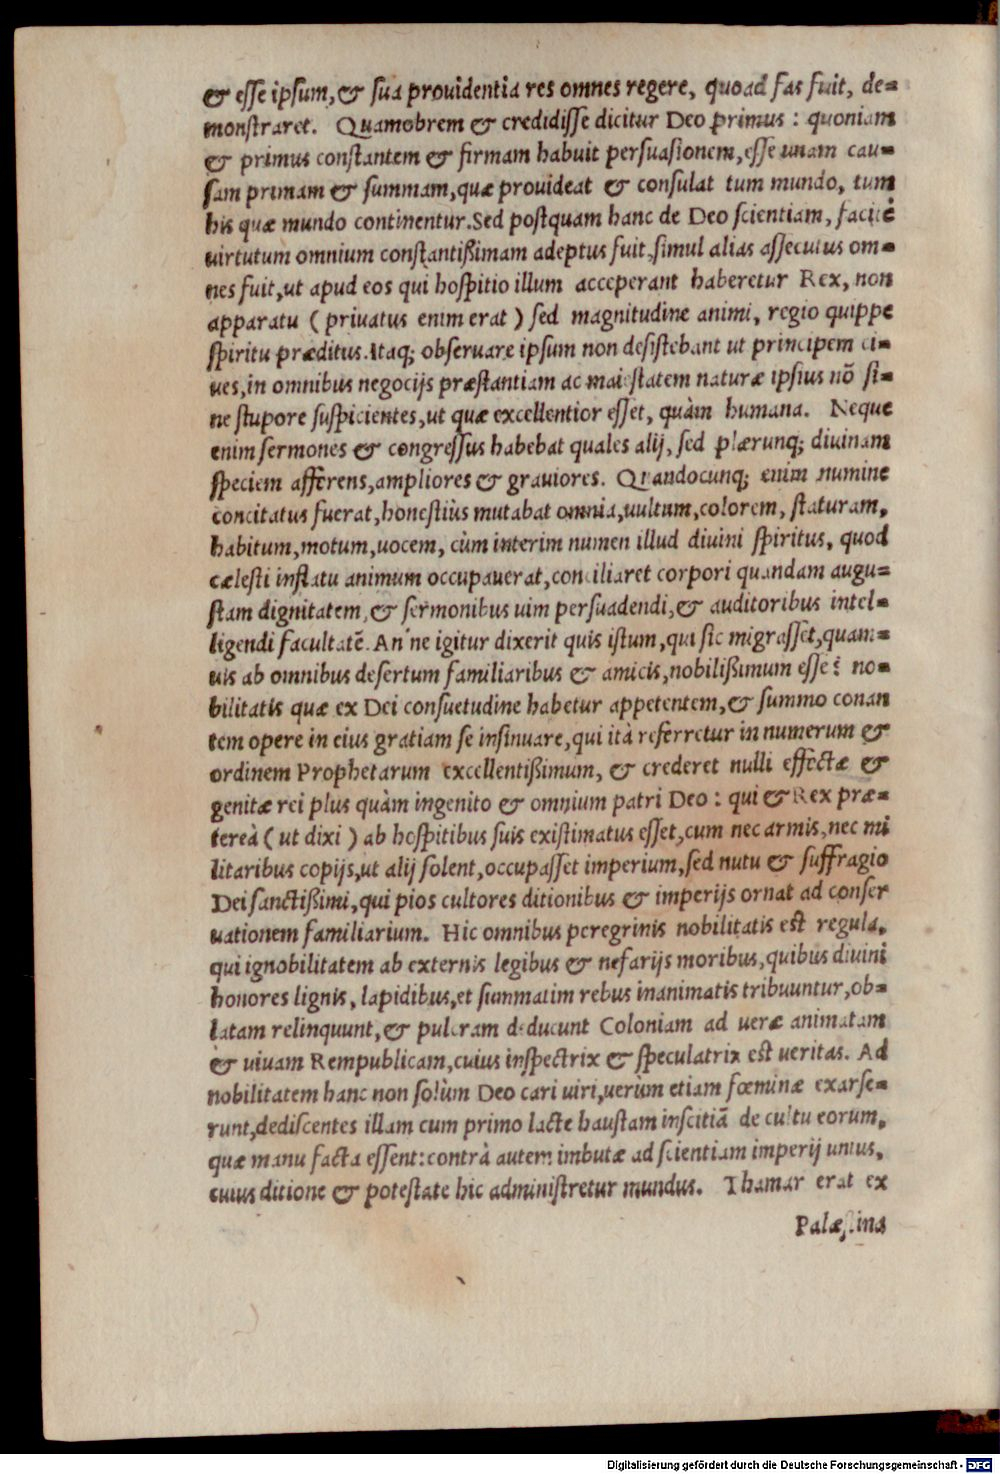 & esse ipsum, & sua prouidentia res omnes regere, quoad fas fuit, de-
monstraret. Quamobrem & credidisse dicitur Deo primus: quoniam
& primus constantem & firmam habuit persuasionem, esse unam cau-
sam primam & summam, quæ prouideat & consulat tum mundo, tum
his quæ mundo continentur. Sed postquam hanc de Deo scientiam, facilè
uirtutum omnium constantißimam adeptus fuit, simul alias assecutus om-
nes fuit, ut apud eos qui hospitio illum acceperant haberetur Rex, non
apparatu (priuatus enim erat) sed magnitudine animi, regio quippe
spiritu præditus. Itaq; obseruare ipsum non desistebant ut principem ci-
ues, in omnibus negocijs præstantiam ac maiestatem naturæ ipsius nõ si-
ne stupore suspicientes, ut quæ excellentior esset, quàm humana. Neque
enim sermones & congressus habebat quales alij, sed plærunq; diuinam
speciem afferens, ampliores & grauiores. Quandocunq; enim numine
concitatus fuerat, honestiùs mutabat omnia, uultum, colorem, staturam,
habitum, motum, uocem, cùm interim numen illud diuini spiritus, quod
cælesti inflatu animum occupauerat, conciliaret corpori quandam augu-
stam dignitatem, & sermonibus uim persuadendi, & auditoribus intel-
ligendi facultatẽ. An'ne igitur dixerit quis istum, qui sic migrasset, quam-
uis ab omnibus desertum familiaribus & amicis, nobilißimum esse? no-
bilitatis quæ ex Dei consuetudine habetur appetentem, & summo conan
tem opere in eius gratiam se insinuare, qui ità referretur in numerum &
ordinem Prophetarum excellentißimum, & crederet nulli effectæ &
genitæ rei plus quàm ingenito & omnium patri Deo: qui & Rex præ-
tereà (ut dixi) ab hospitibus suis existimatus esset, cum nec armis, nec mi
litaribus copijs, ut alij solent, occupasset imperium, sed nutu & suffragio
Dei sanctißimi, qui pios cultores ditionibus & imperijs ornat ad conser
uationem familiarium. Hic omnibus peregrinis nobilitatis est regula,
qui ignobilitatem ab externis legibus & nefarijs moribus, quibus diuini
honores lignis, lapidibus, et summatim rebus inanimatis tribuuntur, ob-
latam relinquunt, & pulcram deducunt Coloniam ad ueræ animatam
& uiuam Rempublicam, cuius inspectrix & speculatrix est ueritas. Ad
nobilitatem hanc non solùm Deo cari uiri, uerùm etiam fœminæ exarse-
runt, dediscentes illam cum primo lacte haustam inscitiã de cultu eorum,
quæ manu facta essent: contrà autem imbutæ ad scientiam imperij unius,
cuius ditione & potestate hic administretur mundus. Thamar erat ex
Palæstina
Digitalisierung gefördert durch die Deutsche Forschungsgemeinschaft - DFG